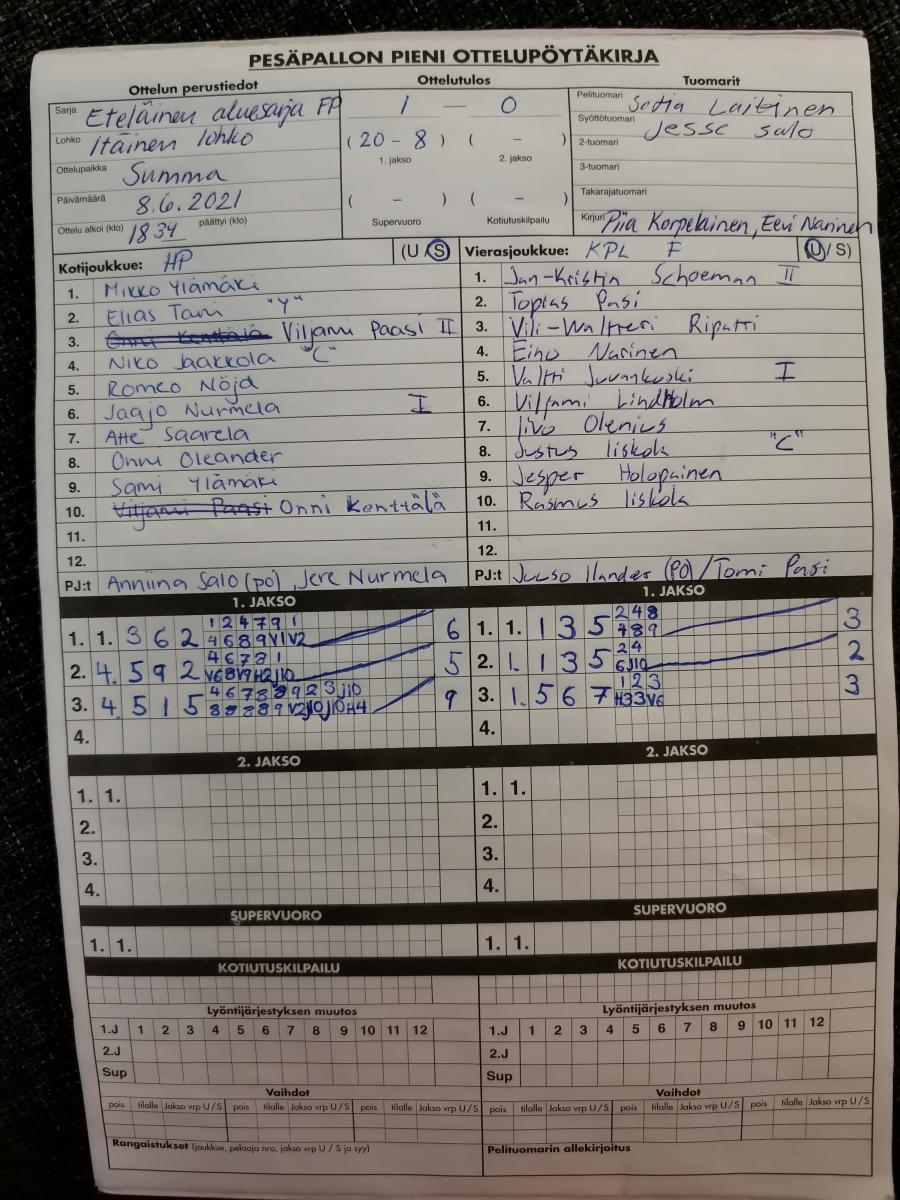 PESÄPALLON PIENI OTTELUPÖYTÄKIRJA
Ottelun perustiedot
Sarja Eteläinen aluesarja FP
Lohko Itäinen lohko
Ottelupaikka Summa
Päivämäärä 8.6.2021
Ottelu alkoi (klo) 1834 päättyi (klo)
Ottelutulos
1 — 0
( 20 - 8 ) ( - )
1. jakso 2. jakso
( - ) ( - )
Supervuoro Kotiutuskilpailu
Tuomarit
Pelituomari Sofia Laitinen
Syöttötuomari Jesse Salo
2-tuomari
3-tuomari
Takarajatuomari
Kirjuri Piia Korpelainen, Eevi Narinen
Kotijoukkue: HP (U/S)
1. Mikko Ylämäki
2. Elias Tani "Y"
3. Onni Kenttälä Viljami Paasi II
4. Niko Jaakkola "C"
5. Romeo Nöjd
6. Jaajo Nurmela I
7. Atte Saarela
8. Onni Oleander
9. Sami Ylämäki
10. Viljami Paasi Onni Kenttälä
11.
12.
PJ:t Anniina Salo (po), Jere Nurmela
Vierasjoukkue: KPL F (U/S)
1. Jan-Kristin Schoeman II
2. Topias Pasi
3. Vili-Waltteri Ripatti
4. Eino Narinen
5. Valtti Juvankoski I
6. Viljami Lindholm
7. Iivo Olenius
8. Justus Iiskola "C"
9. Jesper Holopainen
10. Rasmus Iiskola
11.
12.
PJ:t Juuso Ilander (PO) / Tomi Pasi
1. JAKSO
1. 1. 3 6 2 1 2 4 7 9 1 6
4 6 8 9 V1 V2
2. 4. 5 9 2 4 6 7 8 1 5
V6 8 V9 H2 J10
3. 4. 5 1 5 4 6 7 8 9 2 3 J10 9
4.
1. JAKSO
1. 1. 1 3 5 2 4 8 3
4 8 9
2. 1. 1 3 5 2 4 2
6 J10
3. 1. 5 6 7 1 2 3 3
H3 3 V6
4.
2. JAKSO
1. 1.
2.
3.
4.
2. JAKSO
1. 1.
2.
3.
4.
SUPERVUORO
1. 1.
SUPERVUORO
1. 1.
KOTIUTUSKILPAILU
KOTIUTUSKILPAILU
Lyöntijärjestyksen muutos
1.J 1 2 3 4 5 6 7 8 9 10 11 12
2.J
Sup
Lyöntijärjestyksen muutos
1.J 1 2 3 4 5 6 7 8 9 10 11 12
2.J
Sup
Vaihdot
pois tilalle Jakso vrp U/S pois tilalle Jakso vrp U/S pois tilalle Jakso vrp U/S
Vaihdot
pois tilalle Jakso vrp U/S pois tilalle Jakso vrp U/S pois tilalle Jakso vrp U/S
Rangaistukset (joukkue, pelaaja nro, jakso vrp U / S ja syy)
Pelituomarin allekirjoitus